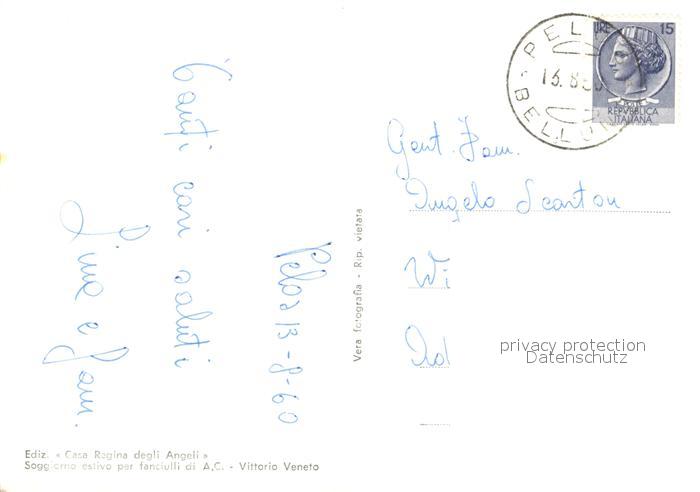 Tanti cari saluti
Pina e fam.
Pelos 13-8-60
Gent. Fam.
Angelo Scarton
Vi
Vera fotografia - Rip. vietata
Ediz. « Casa Regina degli Angeli »
Soggiorno estivo per fanciulli di A.C. - Vittorio Veneto
LIRE 15
REPVBBLICA
ITALIANA
13.8.
BELLUNO
privacy protection
Datenschutz